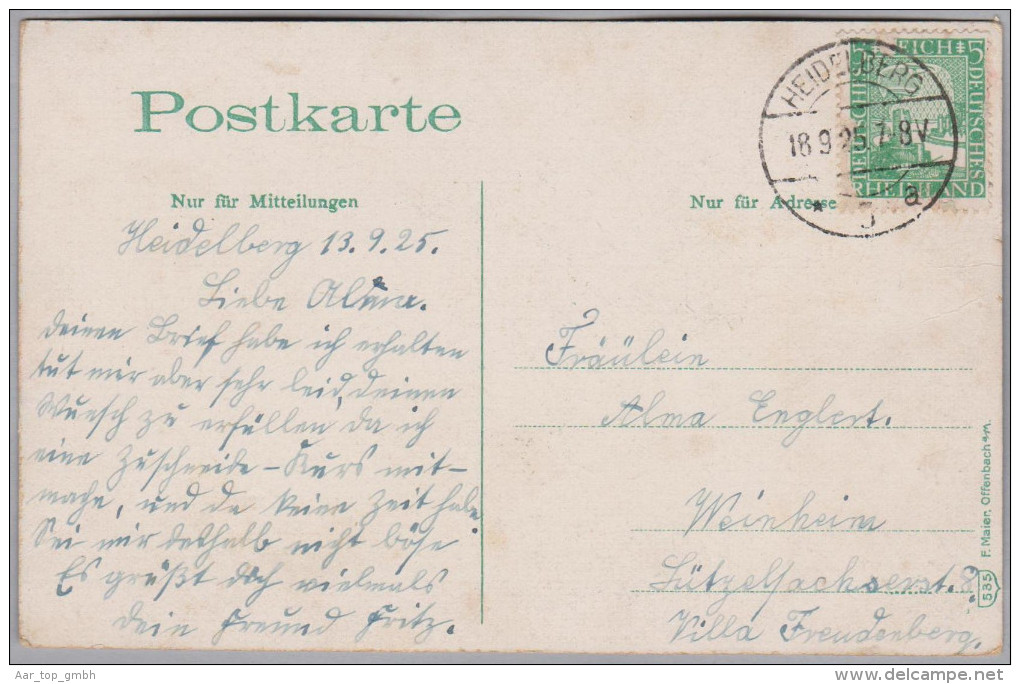 Postkarte
Nur für Mitteilungen
Nur für Adresse
5 REICH 5
DEUTSCHES
RHEINLAND
HEIDELBERG
18 9 25. 7-8V
* a
Heidelberg 13.9.25.
Liebe Alma.
Deinen Brief habe ich erhalten
tut mir aber sehr leid, deinen
Wunsch zu erfüllen, da ich
eine Zuschneide-Kurs mit-
mache, und da keine Zeit habe
Sei mir deshalb nicht böse
Es grüßt dich vielmals
dein Freund Fritz.
Fräulein
Alma Englert.
Weinheim
Lützelsachserst. 8
Villa Freudenberg.
535 F. Maier, Offenbach a/M.
Aar_top_gmbh
www.delcampe.net